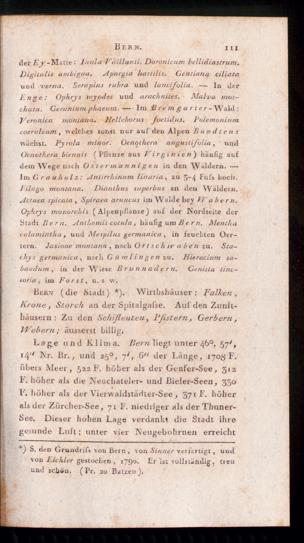 BERN. 111
der Ey-Matte: Inula Vaillanti. Doronicum bellidiastrum.
Digitalis ambigua. Apargia hastilis. Gentiana ciliata
und verna. Serapias rubra und lancifolia. — In der
Enge: Ophrys myodes und arachnites. Malva mos-
chata. Geranium phaeum. — Im Bremgarter-Wald:
Veronica montana. Helleborus foetidus. Polemonium
coeruleum, welches sonst nur auf den Alpen Bündtens
wächst. Pyrola minor. Oenothera angustifolia, und
Oenothera biennis (Pflanze aus Virginien) häufig auf
dem Wege nach Ostermannigen in den Wäldern. —
Im Grauholz: Antirrhinum linaria, zu 3-4 Fuß hoch.
Filago montana. Dianthus superbus an den Wäldern.
Actaea spicata, Spiraea aruncus im Walde bey Wabern.
Ophrys monorchis (Alpenpflanze) auf der Nordseite der
Stadt Bern. Anthemis cotula, häufig um Bern. Mentha
calamintha, und Mespilus germanica, in feuchten Oer-
tern. Jasione montana, nach Ortschwaben zu. Sta-
chys germanica, nach Gümlingen zu. Hieracium sa-
baudum, in der Wiese Brunnadern. Genista tinc-
toria, im Forst, u. s. w.
BERN (die Stadt) *). Wirthshäuser: Falken,
Krone, Storch an der Spitalgaße. Auf den Zunft-
häusern: Zu den Schifleuten, Pfistern, Gerbern,
Webern; äusserst billig.
Lage und Klima. Bern liegt unter 46°, 57′,
14″ Nr. Br., und 25°, 7′, 6″ der Länge, 1708 F.
übers Meer, 522 F. höher als der Genfer-See, 312
F. höher als die Neuchateler- und Bieler-Seen, 330
F. höher als der Vierwaldstädter-See, 371 F. höher
als der Zürcher-See, 71 F. niedriger als der Thuner-
See. Dieser hohen Lage verdankt die Stadt ihre
gesunde Luft; unter vier Neugebohrnen erreicht
*) S. den Grundriß von Bern, von Sinner verfertigt, und
von Eichler gestochen, 1790. Er ist vollständig, treu
und schön. (Pr. 20 Batzen).